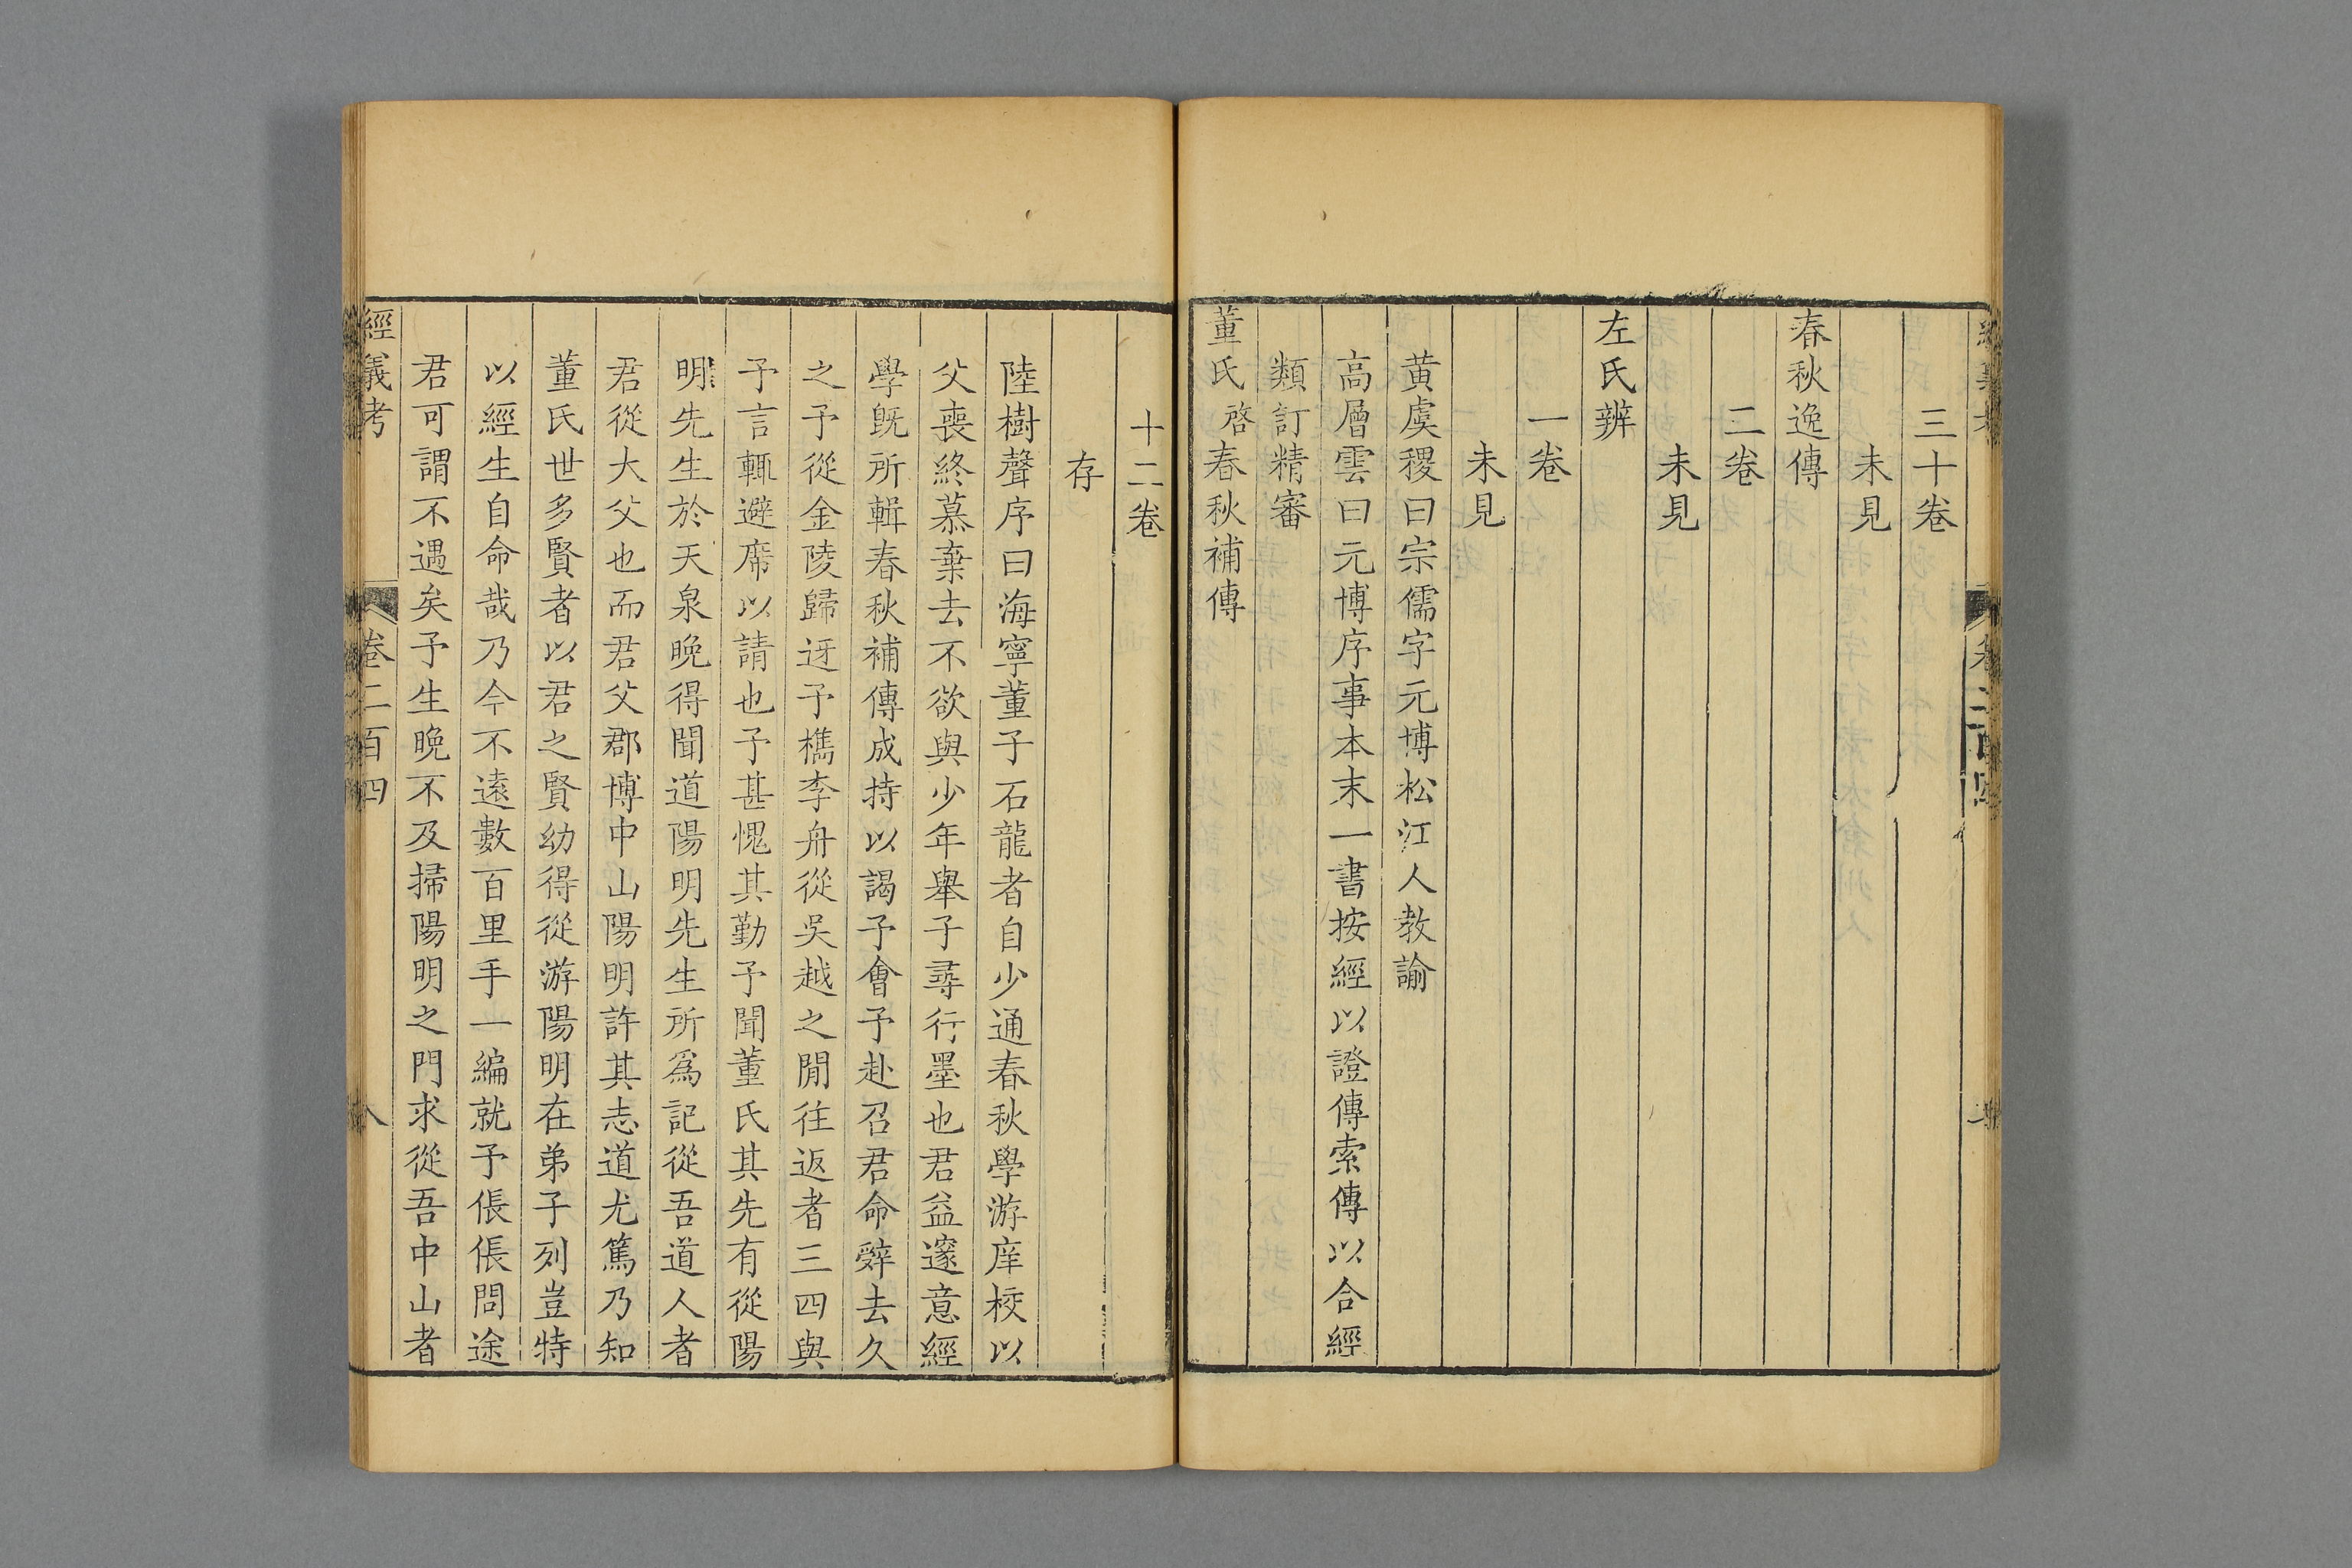 三十卷
未見
春秋逸傳
二卷
未見
左氏辨
一卷
未見
黄虞稷曰宗儒字元博松江人教諭
高層雲曰元博序事本末一書按經以證傳索傳以合經
類訂精審
董氏啓春秋補傳
十二卷
存
陸樹聲序曰海寧董子石龍者自少通春秋學游庠校以
父喪終慕棄去不欲與少年舉子尋行墨也君益邃意經
學旣所輯春秋補傳成持以謁予會予赴召君命辤去久
之予從金陵歸迓予檇李舟從吳越之閒往返者三四與
予言輒避席以請也予甚愧其勤予聞董氏其先有從陽
明先生於天泉晚得聞道陽明先生所爲記從吾道人者
君從大父也而君父郡博中山陽明許其志道尤篤乃知
董氏世多賢者以君之賢幼得從游陽明在弟子列豈特
以經生自命哉乃今不遠數百里手一編就予倀倀問途
君可謂不遇矣予生晚不及掃陽明之門求從吾中山者
經義考 卷二百四 八